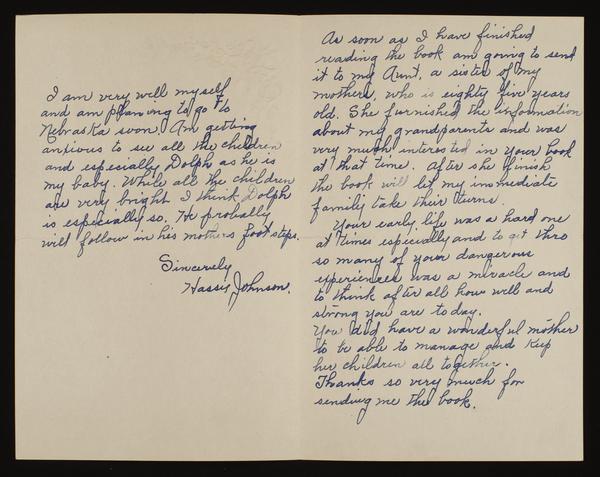 I am very well myself
and am planing to go to
Nebraska soon. Am getting
anxious to see all the children
and especially Dolph as he is
my baby. While all the children
are very bright I think Dolph
is especially so. He probally
will follow in his mothers foot steps.
Sincerely
Johnson.
As soon as I have finished
reading the book am going to send
it to my Aunt, a sister of my
mothers, who is eighty five years
old. She furnished the information
about my grandparents and was
very much interested in your book
at that time. After she finish
the book will let my immediate
family take their turns.
Your early life was a hard one
at times especially and to get thro
so many of your dangerous
experiences was a miracle and
to think after all how well and
strong you are today.
You did have a wonderful mother
to be able to manage and keep
her children all together.
Thanks so very much for
sending me the book.